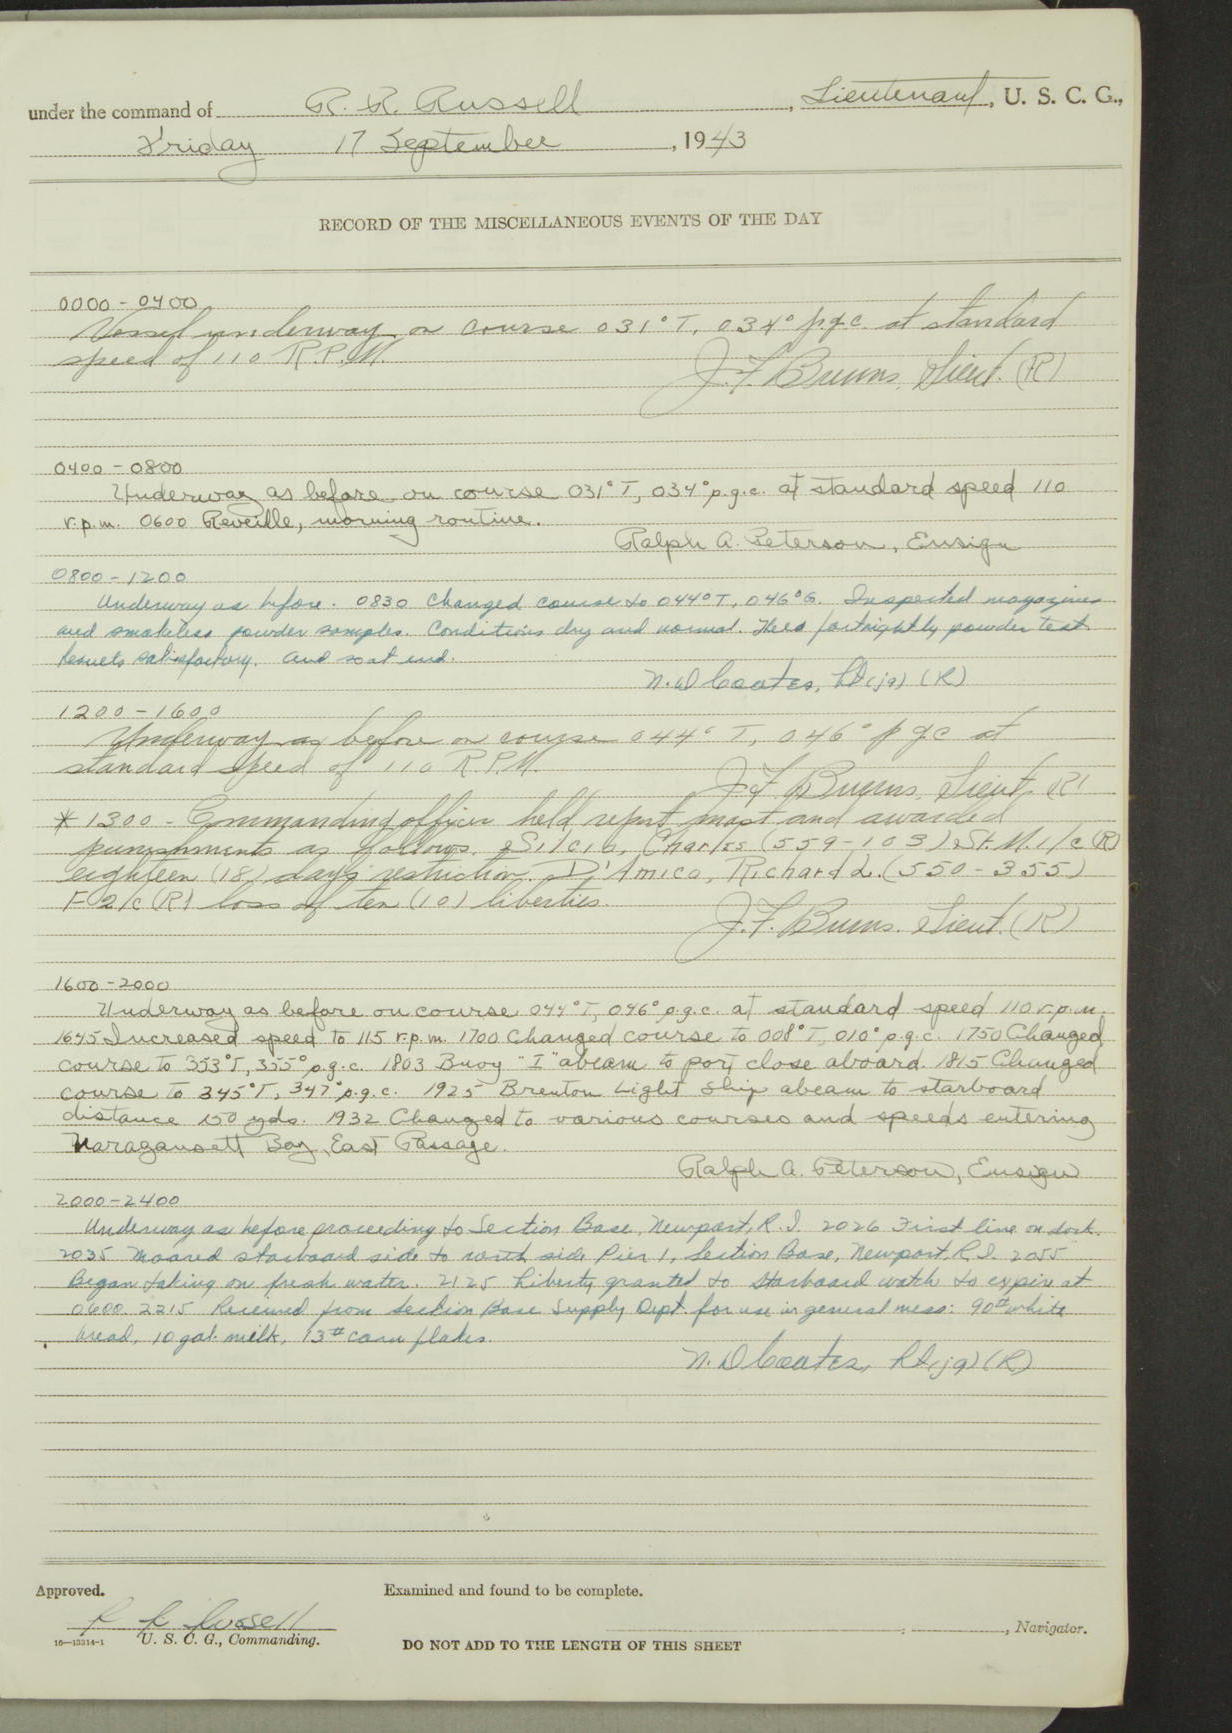 under the command of R. R. Russell, Lieutenant, U. S. C. G.,
Friday 17 September, 1943
RECORD OF THE MISCELLANEOUS EVENTS OF THE DAY
0000 - 0400
Vessel underway on course 031° T, 034° p.g.c. at standard
speed of 110 R.P.M.
J. F. Burns, Lieut. (R)
0400 - 0800
Underway as before on course 031° T, 034° p.g.c. at standard speed 110
r.p.m. 0600 Reveille, morning routine.
Ralph A. Peterson, Ensign
0800 - 1200
Underway as before. 0830 Changed course to 044° T, 046° G. Inspected magazines
and smokeless powder samples. Conditions dry and normal. Held fortnightly powder test
Results satisfactory. And so at end.
N. D Coates, Lt(jg) (R)
1200 - 1600
Underway as before on course 044° T, 046° p g.c at
standard speed of 110 R.P.M.
J. F Burns, Lieut. (R)
* 1300 - Commanding officer held report mast and awarded
punishments as follows. Charles (559-103) St. M. 1/c (R)
eighteen (18) days restriction. D'Amico, Richard L. (550-355)
F 2/c (R) loss of ten (10) liberties.
J. F. Burns. Lieut. (R)
1600 - 2000
Underway as before on course 044° T, 046° p.g.c. at standard speed 110 r.p.m.
1645 Increased speed to 115 r.p.m. 1700 Changed course to 008° T, 010° p.g.c. 1750 Changed
course to 353° T, 355° p.g.c. 1803 Buoy "I" abeam to port close aboard. 1815 Changed
course to 345° T, 347° p.g.c. 1925 Brenton Light Ship abeam to starboard
distance 150 yds. 1932 Changed to various courses and speeds entering
Naragansett Bay, East Passage.
Ralph A. Peterson, Ensign
2000 - 2400
Underway as before proceeding to Section Base, Newport, R.I. 2026 First line on dock.
2035 Moored starboard side to north side Pier 1, Section Base, Newport, R.I. 2055
Began taking on fresh water. 2125 Liberty granted to Starboard watch to expire at
0600. 2215 Received from Section Base Supply Dept. for use in general mess: 90# white
bread, 10 gal. milk, 13# corn flakes.
N. D Coates, Lt(jg) (R)
Approved.
Examined and found to be complete.
R R Russell
U. S. C. G., Commanding.
, Navigator.
16—13314-1
DO NOT ADD TO THE LENGTH OF THIS SHEET